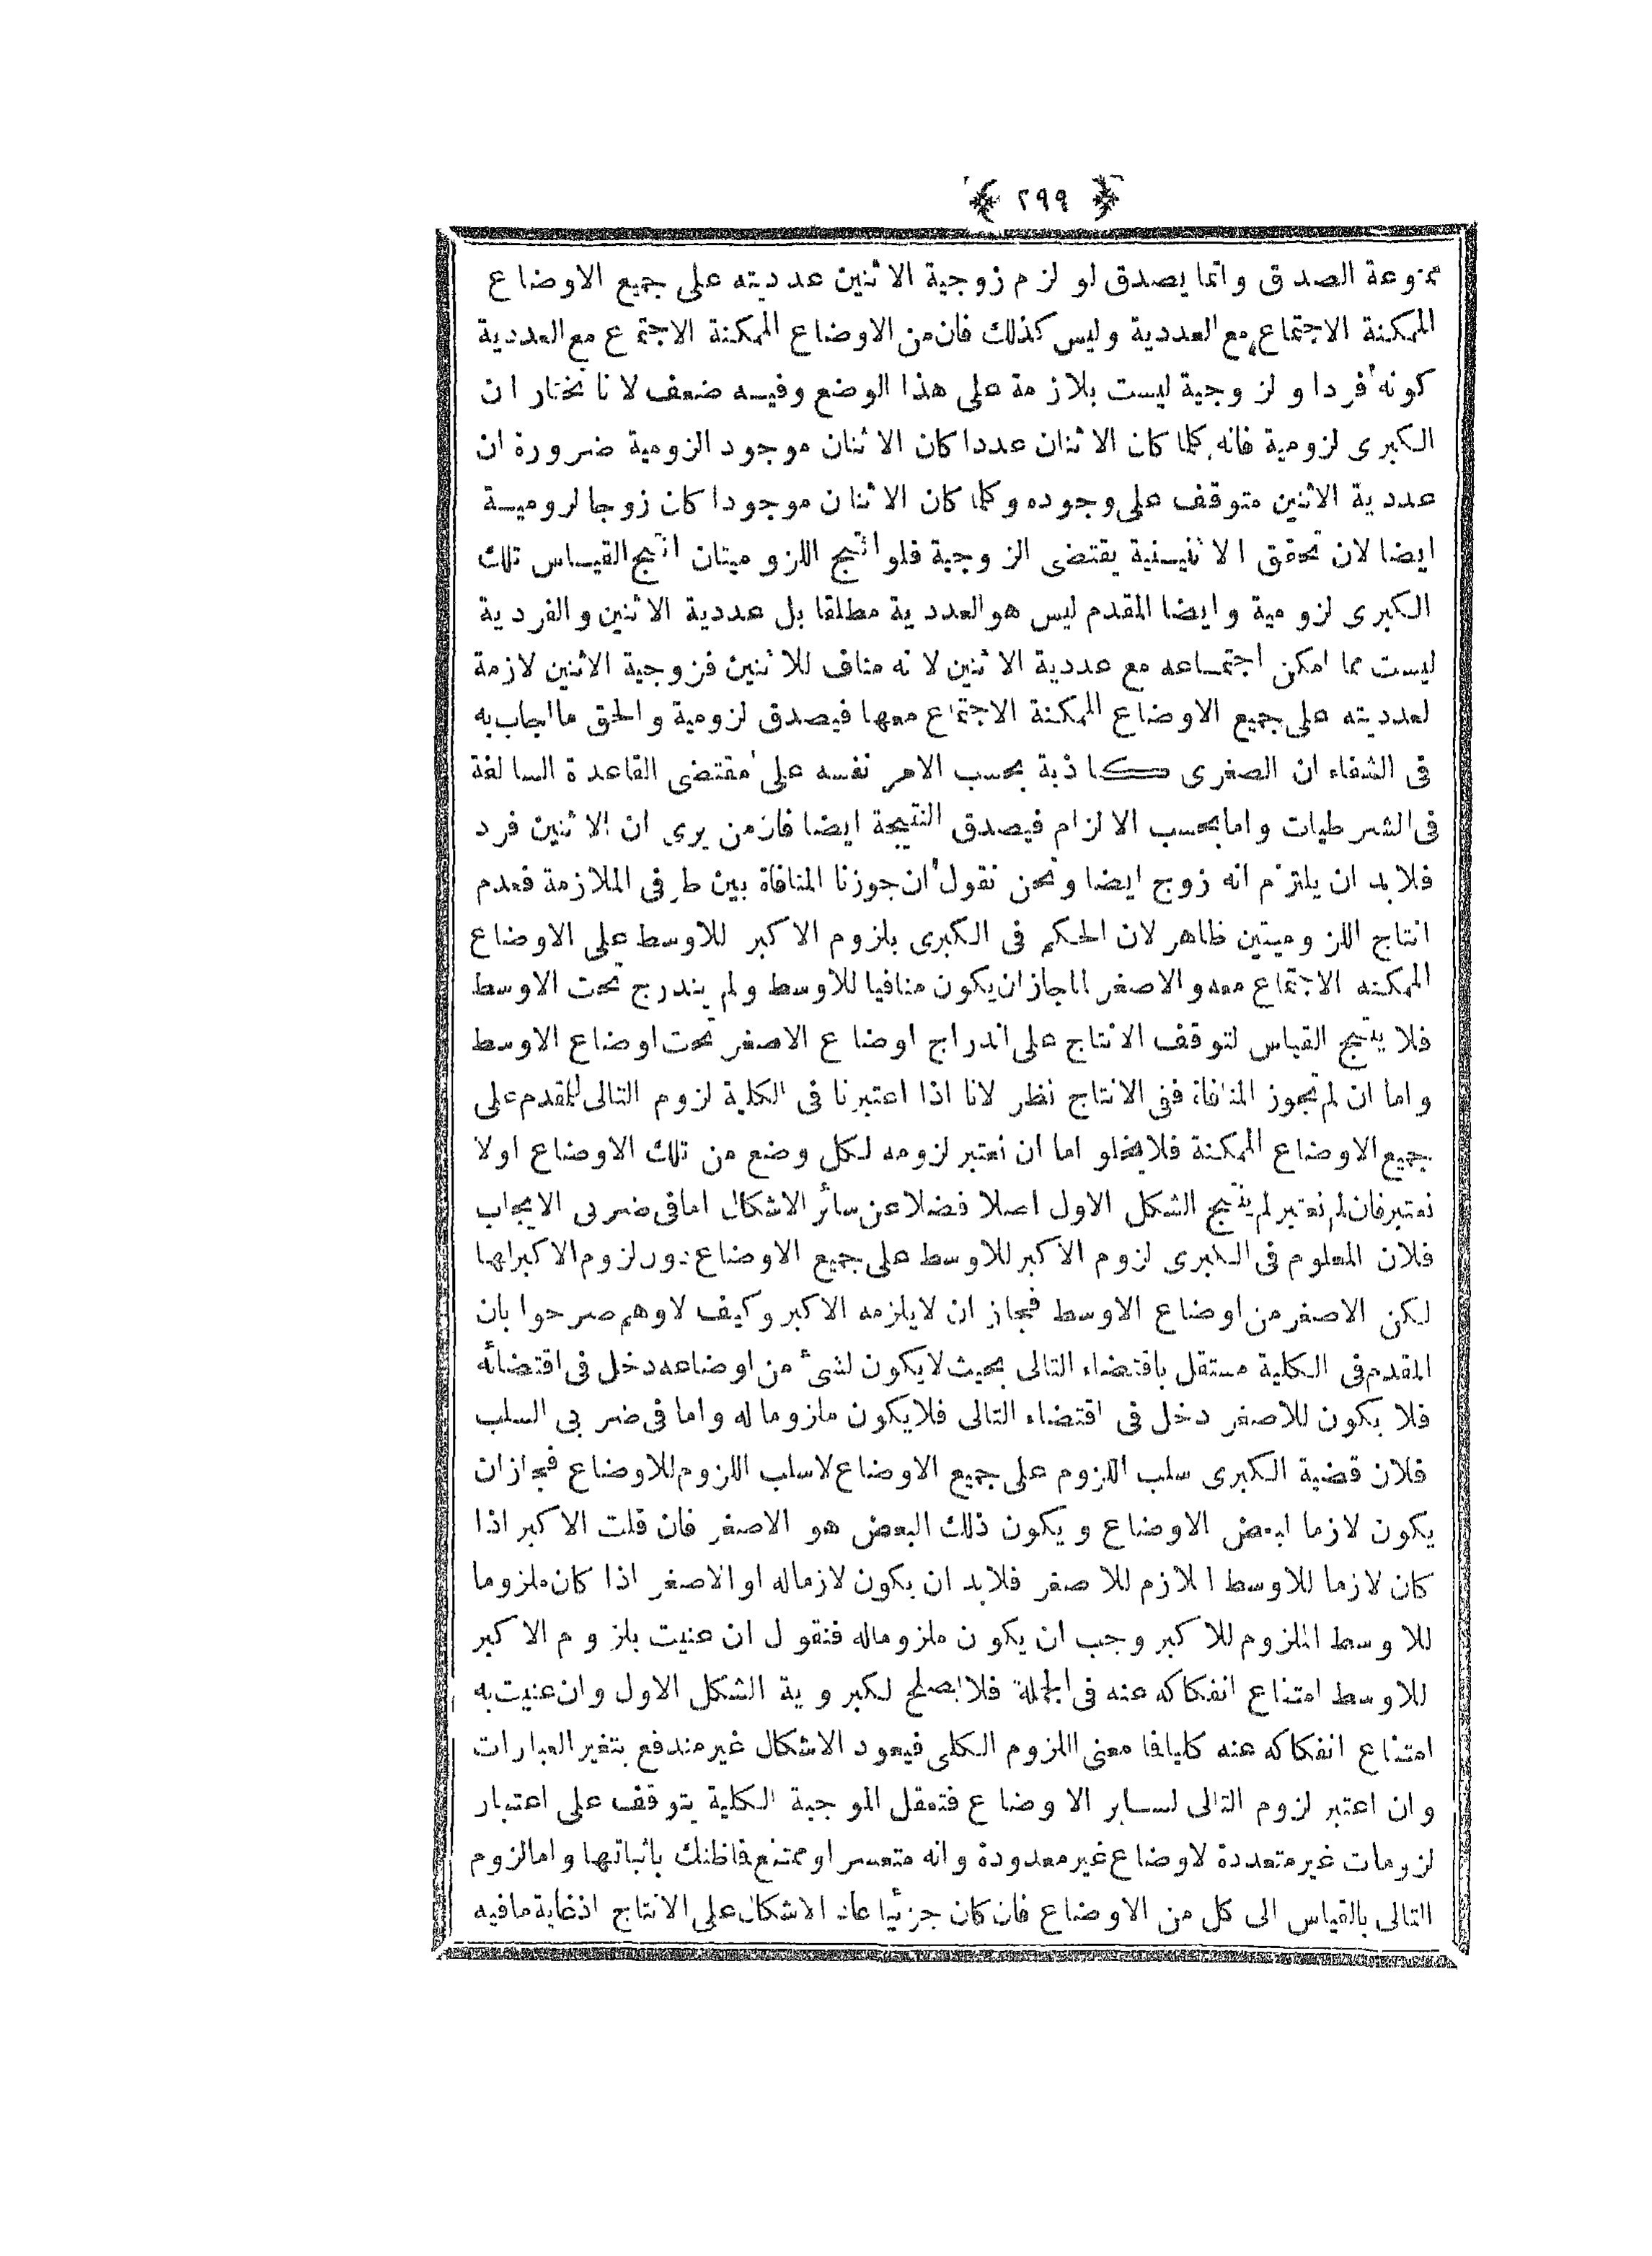 ﴿ ٢٩٩ ﴾
ممنوعة الصدق وانما يصدق لو لزم زوجية الاثنين عدديته على جميع الاوضاع
الممكنة الاجتماع مع العددية وليس كذلك فان من الاوضاع الممكنة الاجتماع مع العددية
كونه فردا و لزوجية ليست بلازمة على هذا الوضع وفيه ضعف لانا نختار ان
الكبرى لزومية فانه كلما كان الاثنان عددا كان الاثنان موجود الزومية ضرورة ان
عددية الاثنين متوقف على وجوده وكلما كان الاثنان موجودا كان زوجا لروميـة
ايضا لان تحقق الاثنيـنية يقتضى الزوجية فلو انتج اللزوميتان انتج القيـاس تلك
الكبرى لزومية وايضا المقدم ليس هو العددية مطلقا بل عددية الاثنين والفردية
ليست مما امكن اجتمـاعه مع عددية الاثنين لانه مناف للاثنين فزوجية الاثنين لازمة
لعدديته على جميع الاوضاع الممكنة الاجتماع معها فيصدق لزومية والحق ما اجاب به
فى الشفاء ان الصغرى كاذبة بحسب الامر نفسه على مقتضى القاعدة السالفة
فى الشرطيات واما بحسب الالزام فيصدق النتيجة ايضا فان من يرى ان الاثنين فرد
فلابد ان يلتزم انه زوج ايضا ونحن نقول ان جوزنا المنافاة بين طرفى الملازمة فعدم
انتاج اللزوميتين ظاهر لان الحكم فى الكبرى بلزوم الاكبر للاوسط على الاوضاع
الممكنه الاجتماع معه والاصغر لما جاز ان يكون منافيا للاوسط ولم يندرج تحت الاوسط
فلا ينتج القياس لتوقف الانتاج على اندراج اوضاع الاصغر تحت اوضاع الاوسط
واما ان لم تجوز المنافاة ففى الانتاج نظر لانا اذا اعتبرنا فى الكلية لزوم التالى للمقدم على
جميع الاوضاع الممكنة فلا يخلو اما ان نعتبر لزومه لكل وضع من تلك الاوضاع اولا
نعتبر فان لم نعتبر لم ينتج الشكل الاول اصلا فضلا عن سائر الاشكال اما فى ضربى الايجاب
فلان المعلوم فى الكبرى لزوم الاكبر للاوسط على جميع الاوضاع دون لزوم الاكبر لها
لكن الاصغر من اوضاع الاوسط فجاز ان لا يلزمه الاكبر وكيف لا وهم صرحوا بان
المقدم فى الكلية مستقل باقتضاء التالى بحيث لا يكون لشئ من اوضاعه دخل فى اقتضائه
فلا يكون للاصغر دخل فى اقتضاء التالى فلا يكون ملزوما له واما فى ضربى السلب
فلان قضية الكبرى سلب اللزوم على جميع الاوضاع لا سلب اللزوم للاوضاع فجاز ان
يكون لازما لبعض الاوضاع ويكون ذلك البعض هو الاصغر فان قلت الاكبر اذا
كان لازما للاوسط اللازم للاصغر فلابد ان يكون لازما له او الاصغر اذا كان ملزوما
للاوسط الملزوم للاكبر وجب ان يكون ملزوما له فنقول ان عنيت بلزوم الاكبر
للاوسط امتناع انفكاكه عنه فى الجملة فلا يصلح لكبروية الشكل الاول وان عنيت به
امتناع انفكاكه عنه كليا فا معنى اللزوم الكلى فيعود الاشكال غير مندفع بتغير العبارات
وان اعتبر لزوم التالى لسـاير الاوضاع فتعقل الموجبة الكلية يتوقف على اعتبار
لزومات غير متعددة لاوضاع غير معدودة وانه متعسر او ممتنع فاظنك باثباتها واما لزوم
التالى بالقياس الى كل من الاوضاع فان كان جزئيا عاد الاشكال على الانتاج اذ غاية مافيه